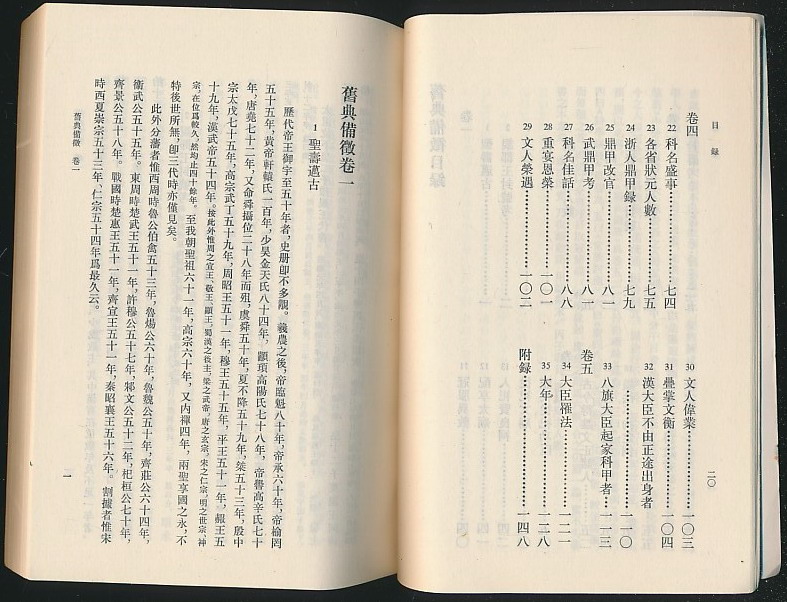 目錄
卷四
22 科名盛事……七四
23 各省狀元人數……七五
24 浙人鼎甲録……七九
25 鼎甲改官……八一
26 武鼎甲考……八一
27 科名佳話……八八
28 重宴恩榮……一〇一
29 文人榮遇……一〇二
30 文人偉業……一〇三
31 疊掌文衡……一〇四
32 漢大臣不由正途出身者
……一一〇
卷五
33 八旗大臣起家科甲者……一一三
34 大臣罹法……一二一
35 大年……一二八
附録……一四八
二〇
舊典備徵卷一
1 聖壽邁古
歷代帝王御宇至五十年者，史册卽不多覯。羲農之後，帝臨魁八十年，帝承六十年，帝榆罔
五十五年，黃帝軒轅氏一百年，少昊金天氏八十四年，顓頊高陽氏七十八年，帝嚳高辛氏七十
年，唐堯七十二年，又命舜攝位二十八年而殂，虞舜五十年，夏不降五十九年，桀五十三年，殷中
宗太戊七十五年，高宗武丁五十九年，周昭王五十一年，穆王五十五年，平王五十一年，赧王五
十九年，漢武帝五十四年。按此外惟周之宣王、敬王、顯王，蜀漢之後主，梁之武帝，唐之玄宗，宋之仁宗，明之世宗、神
宗，在位爲較久，然均止四十餘年。至我朝聖祖六十一年，高宗六十年，又內禪四年，兩聖享國之永，不
特後世所無，卽三代時亦僅見矣。
此外分藩者惟西周時魯公伯禽五十三年，魯煬公六十年，魯魏公五十年，齊莊公六十四年，
衞武公五十五年。東周時楚武王五十一年，許穆公五十七年，邾文公五十二年，杞桓公七十年，
齊景公五十八年。戰國時楚惠王五十一年，齊宣王五十一年，秦昭襄王五十六年。割據者惟宋
時西夏崇宗五十三年、仁宗五十四年爲最久云。
舊典備徵 卷一
一